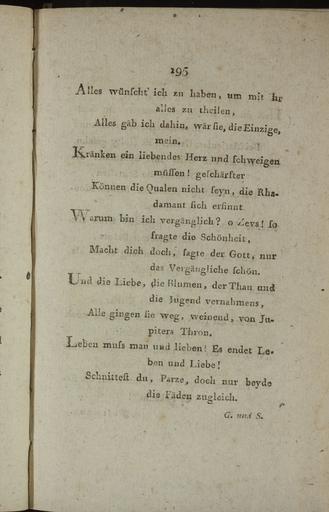 195
Alles wünscht' ich zu haben, um mit ihr
alles zu theilen,
Alles gäb ich dahin, wär sie, die Einzige,
mein.
Kränken ein liebendes Herz und schweigen
müssen! geschärfter
Können die Qualen nicht seyn, die Rha-
damant sich ersinnt.
Warum bin ich vergänglich? o Zevs! so
fragte die Schönheit,
Macht dich doch, sagte der Gott, nur
das Vergängliche schön.
Und die Liebe, die Blumen, der Thau und
die Jugend vernahmens,
Alle gingen sie weg, weinend, von Ju-
piters Thron.
Leben muss man und lieben! Es endet Le-
ben und Liebe!
Schnittest du, Parze, doch nur beyde
die Fäden zugleich.
G. und S.